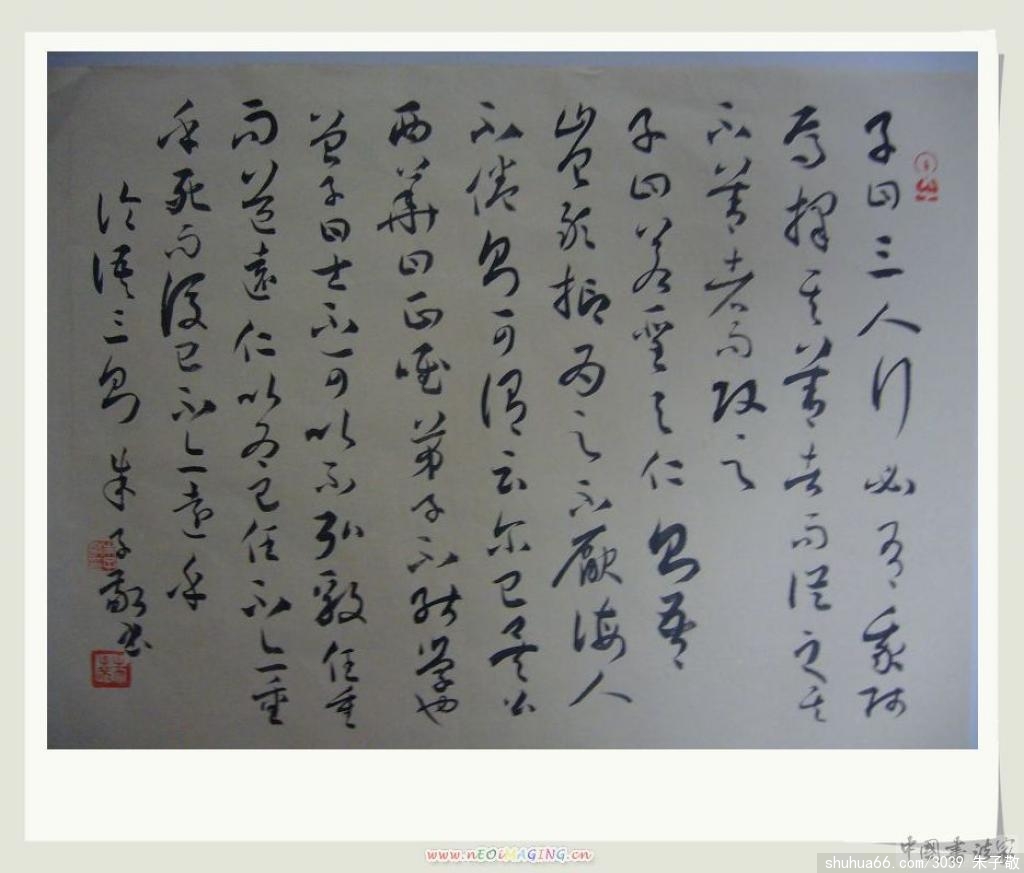 子曰三人行必有我師
焉擇其善者而從之其
不善者而改之
子曰若聖與仁則吾
豈敢抑為之不厭誨人
不倦則可謂云尔已矣公
西華曰正唯弟子不能學也
曾子曰士不可以不弘毅任重
而道遠仁以為己任不亦重
乎死而後已不亦遠乎
論語三則 朱子敬書
www.nEOiMAGiNG.cn
中國書法家
shuhua66.com/3039 朱子敬